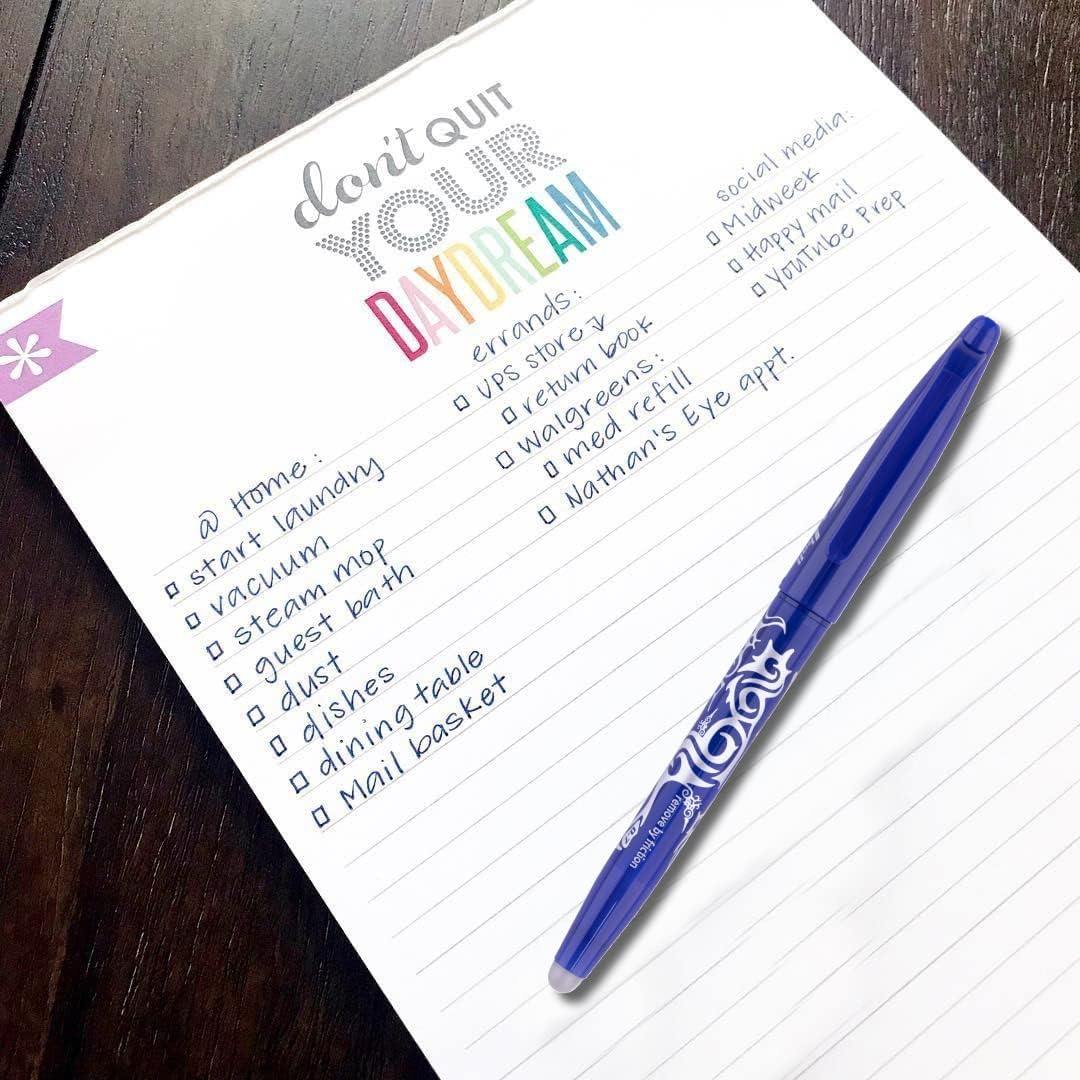 don't QUIT
YOUR
DAYDREAM
social media:
□ Midweek
□ Happy mail
□ YouTube Prep
errands:
□ UPS store
□ return book
□ Walgreens:
□ med refill
□ Nathan's Eye appt.
@ Home:
□ start laundry
□ vacuum
□ steam mop
□ guest bath
□ dust
□ dishes
□ dining table
□ Mail basket
remove by friction